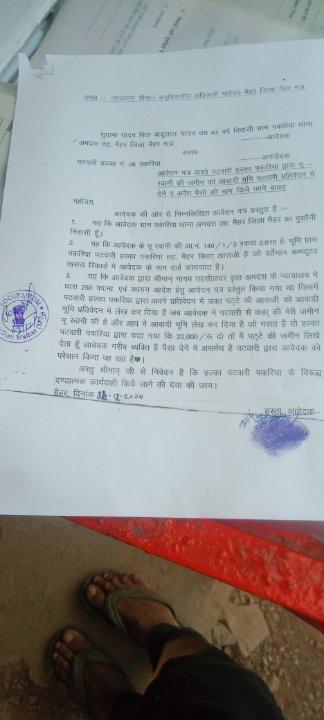 समक्ष :- न्यायालय श्रीमान् अनुविभागीय अधिकारी महोदय मैहर जिला मैहर म.प्र.
सुदामा यादव पिता बाबूलाल यादव उम्र 63 वर्ष निवासी ग्राम पकरिया थाना
अमदरा तह. मैहर जिला मैहर म.प्र. —आवेदक
बनाम
पटवारी हल्का नं. 08 पकरिया —अनावेदक
आवेदन पत्र वास्ते पटवारी हल्का पकरिया द्वारा भू –
स्वामी की जमीन को आबादी भूमि पटवारी प्रतिवेदन मे
देने व अवैध पैसो की मांग किये जाने बावत्
महोदय,
आवेदक की ओर से निम्नलिखित आवेदन पत्र प्रस्तुत है :-
1. यह कि आवेदक ग्राम पकरिया थाना अमदरा तह. मैहर जिला मैहर का पुस्तैनी
निवासी हूँ।
2. यह कि आवेदक के भू स्वामी की आ.नं. 140/1/3 रकवा 0.010 हे. भूमि ग्राम
पकरिया पटवारी हल्का पकरिया तह. मैहर स्थित आराजी है जो वर्तमान कम्प्यूटर
खसरा रिकार्ड मे आवेदक के नाम दर्ज कागजात है।
3. यह कि आवेदक द्वारा श्रीमान् नायब तहसीलदार वृत्त अमदरा के न्यायालय मे
धारा 250 का.मा. एवं स्थगन आदेश हेतु आवेदन पत्र प्रस्तुत किया गया था जिसमें
पटवारी हल्का पकरिया द्वारा अपने प्रतिवेदन मे उक्त पट्टे की आराजी को आबादी
भूमि प्रतिवेदन मे लेख कर दिया है जब आवेदक ने पटवारी से कहा की मेरी जमीन
भू स्वामी की है और आप ने आबादी भूमि लेख कर दिया है जो गलत है तो हल्का
पटवारी पकरिया द्वारा कहा गया कि 20,000/रू दो तो मै पट्टे की जमीन लिख
देता हूँ आवेदक गरीब व्यक्ति है पैसा देने मे असमर्थ है पटवारी द्वारा आवेदक को
परेसान किया जा रहा है।
अस्तु श्रीमान् जी से निवेदन है कि हल्का पटवारी पकरिया के विरूद्ध
दण्डात्मक कार्यवाही किये जाने की दया की जाय।
मैहर, दिनांक -12-2024
हस्ता. आवेदक